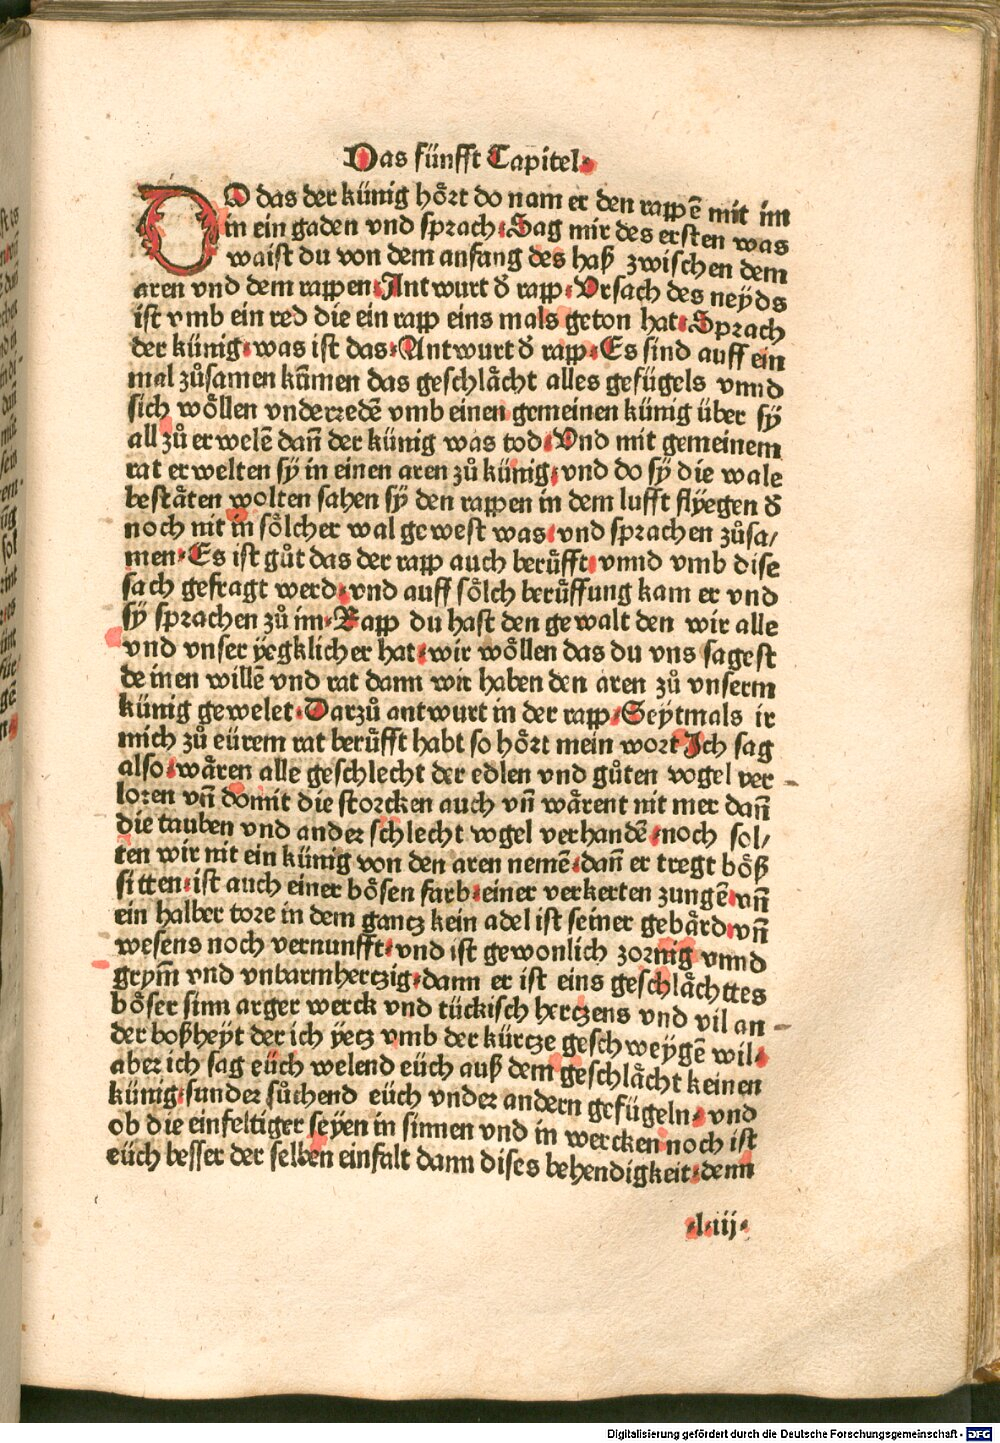 Das fünfft Capitel·
DO das der künig hoͤrt do nam er den rappē mit im
in ein gaden vnd sprach·Sag mir des ersten was
waist du von dem anfang des haß zwischen dem
aren vnd dem rappen·Antwurt ď rapp·Vrsach des neÿds
ist vmb ein red die ein rapp eins mals geton hat·Sprach
der künig·was ist das·Antwurt ď rapp·Es sind auff ein
mal zuͦsamen kūmen das geschlaͤcht alles gefügels vnnd
sich woͤllen vnderredē vmb einen gemeinen künig über sÿ
all zuͦ erwelē dañ der künig was tod·Vnd mit gemeinem
rat erwelten sÿ in einen aren zuͦ künig·vnd do sÿ die wale
bestaͤten wolten sahen sÿ den rappen in dem lufft flyegen ď
noch nit in soͤlcher wal gewest was·vnd sprachen zuͦsa/
men·Es ist guͦt das der rapp auch beruͤfft·vnnd vmb dise
sach gefragt werd·vnd auff soͤlch beruͤffung kam er vnd
sÿ sprachen zuͦ im·Rapp du hast den gewalt den wir alle
vnd vnser yegklicher hat·wir woͤllen das du vns sagest
deinen willē vnd rat dann wir haben den aren zuͦ vnserm
künig gewelet·Darzuͦ antwurt in der rapp·Seÿtmals ir
mich zuͦ eürem rat beruͤfft habt so hoͤrt mein wort Ich sag
also·waͤren alle geschlecht der edlen vnd guͦten vogel ver
loren vñ domit die storcken auch vñ waͤrent nit mer dañ
die tauben vnd ander schlecht vogel verhandē·noch sol/
ten wir nit ein künig von den aren nemē·dañ er tregt boͤß
sitten·ist auch einer boͤsen farb·einer verkerten zungē·vñ
ein halber tore in dem gantz kein adel ist seiner gebaͤrd·vñ
wesens noch vernunfft·vnd ist gewonlich zornig vnnd
grym̄ vnd vnbarmhertzig·dann er ist eins geschlaͤchttes
boͤser sinn arger werck vnd tückisch hertzens vnd vil an
der boßheyt der ich yetz vmb der kürtze geschweygē wil·
aber ich sag eüch welend eüch auß dem geschlaͤcht keinen
künig·sunder suͦchend eüch vnder andern gefügeln·vnd
ob die einfeltiger seyen in sinnen vnd in wercken noch ist
eüch besser der selben einfalt dann dises behendigkeit·denn
·l·iij·
Digitalisierung gefördert durch die Deutsche Forschungsgemeinschaft - DFG